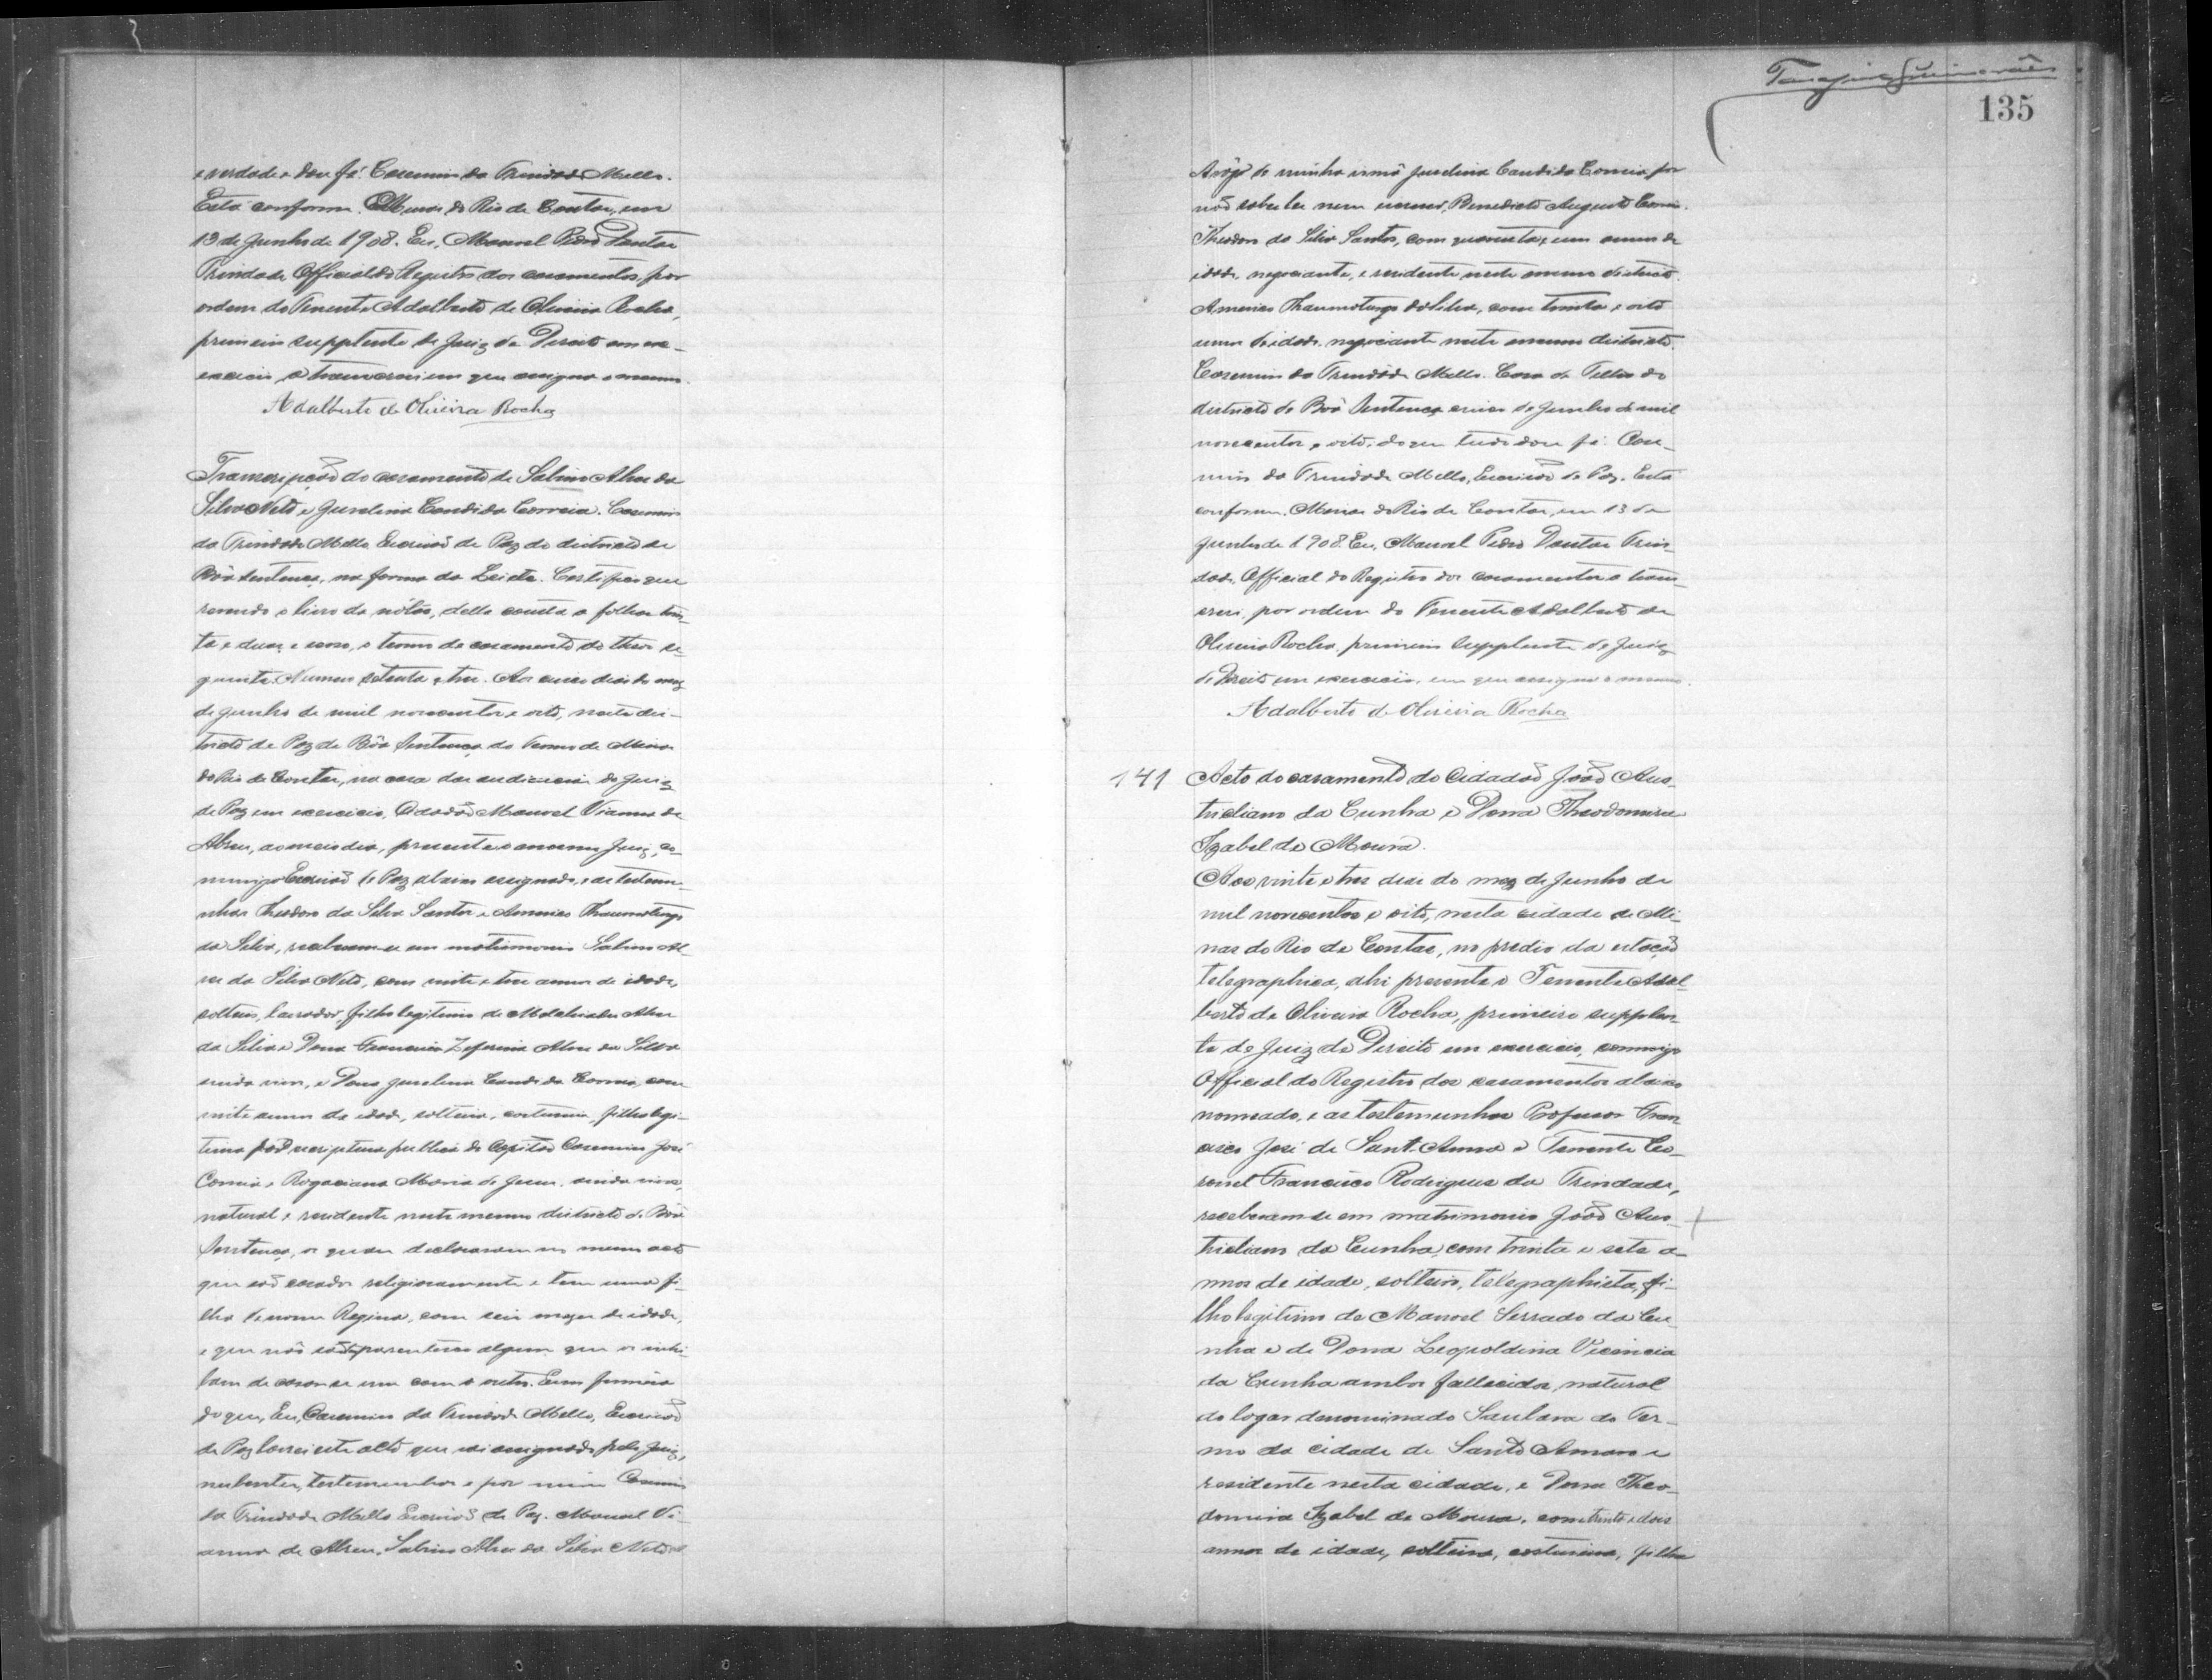 e verdade e dou fé. Casemiro da Trindade Mello.
Está conforme. Minas do Rio de Contas, em
13 de Junho de 1908. Eu, Manoel Pedro Dantas
Trindade Official do Registro dos casamentos por
ordem do Tenente Adalberto de Oliveira Rocha,
primeiro supplente de Juiz de Direito em ex-
ercicio, o transcrevi em que assigna o mesmo.
Adalberto de Oliveira Rocha
Transcripção do casamento de Sabino Alves da
Silva Neto e Juvelina Candida Correia. Casemiro
da Trindade Mello Escrivão de Paz do districto de
Bôa Sentença, na forma da Lei etc. Certifico que
revendo o livro de nótas, delle consta a folhas trin-
ta e duas e verso, o termo de casamento do theor se-
guinte. Numero setenta e tres. Aos cinco dias do mez
de Junho de mil novecentos e oito, neste dis-
tricto de Paz de Bôa Sentença do Termo de Minas
do Rio de Contas, na casa das audiencias do Juiz
de Paz em exercicio, Cidadão Manoel Vianna de
Abreu, ao meio dia, presente o mesmo Juiz, co-
mmigo Escrivão de Paz abaixo assignado, e as testemu-
nhas Theodoro da Silva Santos e Americo Thaumaturgo
da Silva, receberam-se em matrimonio Sabino Al-
ves da Silva Neto, com vinte e tres annos de idade,
solteiro, lavrador, filho legitimo de Melchiades Alves
da Silva e Dona Francisca Zeferina Alves da Silva
ainda vivos, e Dona Juvelina Candida Correia, com
vinte annos de idade, solteira, costureira, filha legi-
tima por escriptura publica do Capitão Casemiro José
Correia e Rogaciana Maria de Jesus, ainda vivos,
natural e residente neste mesmo districto de Bôa
Sentença, os quaes declararam no mesmo acto
que são casados religiosamente e tem uma fi-
lha de nome Regina, com seis mezes de idade,
e que não são parentesco algum que os inhi-
bam de casar-se um com o outro. Em firmeza
do que, Eu, Casemiro da Trindade Mello, Escrivão
de Paz lavrei este acto que vai assignado pelo Juiz,
nubentes, testemunhas e por mim Casemiro
da Trindade Mello Escrivão de Paz. Manoel Vi-
anna de Abreu. Sabino Alves da Silva Neto.
Guimarães
135
Arôgo de minha irmã Juvelina Candida Correia, por
não saber ler nem escrever, Benedicto Augusto Correia.
Theodoro da Silva Santos, com quarenta e um annos de
idade, negociante, e residente neste mesmo districto.
Americo Thaumaturgo da Silva, com trinta e oito
annos de idade, negociante neste mesmo districto.
Casemiro da Trindade Mello. Casa de
districto de Bôa Sentença cinco de Junho de mil
novecentos e oito, do que tudo dou fé. Case-
miro da Trindade Mello, Escrivão de Paz. Está
conforme. Minas do Rio de Contas, em 13 de
Junho de 1908. Eu, Manoel Pedro Dantas Trin-
dade, Official do Registro dos casamentos o trans-
crevi, por ordem do Tenente Adalberto de
Oliveira Rocha, primeiro supplente de Juiz
de Direito em exercicio, em que assigna o mesmo.
Adalberto de Oliveira Rocha
141 Acto do casamento do Cidadão João Aus-
tricliano da Cunha e Dona Theodomira
Izabel de Moura.
Aos vinte e tres dias do mez de Junho de
mil novecentos e oito, nesta cidade de Mi-
nas do Rio de Contas, no predio da estação
telegraphica, ahi presente o Tenente Adal-
berto de Oliveira Rocha, primeiro supplen-
te de Juiz de Direito em exercicio, commigo
Official do Registro dos casamentos abaixo
nomeado, e as testemunhas Professor Fran-
cisco José de Sant'Anna e Tenente Co-
ronel Francisco Rodrigues da Trindade,
receberam-se em matrimonio João Aus-
tricliano da Cunha, com trinta e sete a-
nnos de idade, solteiro, telegraphista, fi-
lho legitimo de Manoel Serrado da Cu-
nha e de Dona Leopoldina Vicencia
da Cunha ambos fallecidos, natural
do logar denominado Saubara do Ter-
mo da cidade de Santo Amaro e
residente nesta cidade, e Dona Theo-
domira Izabel de Moura, com trinta e dois
annos de idade, solteira, costureira, filha